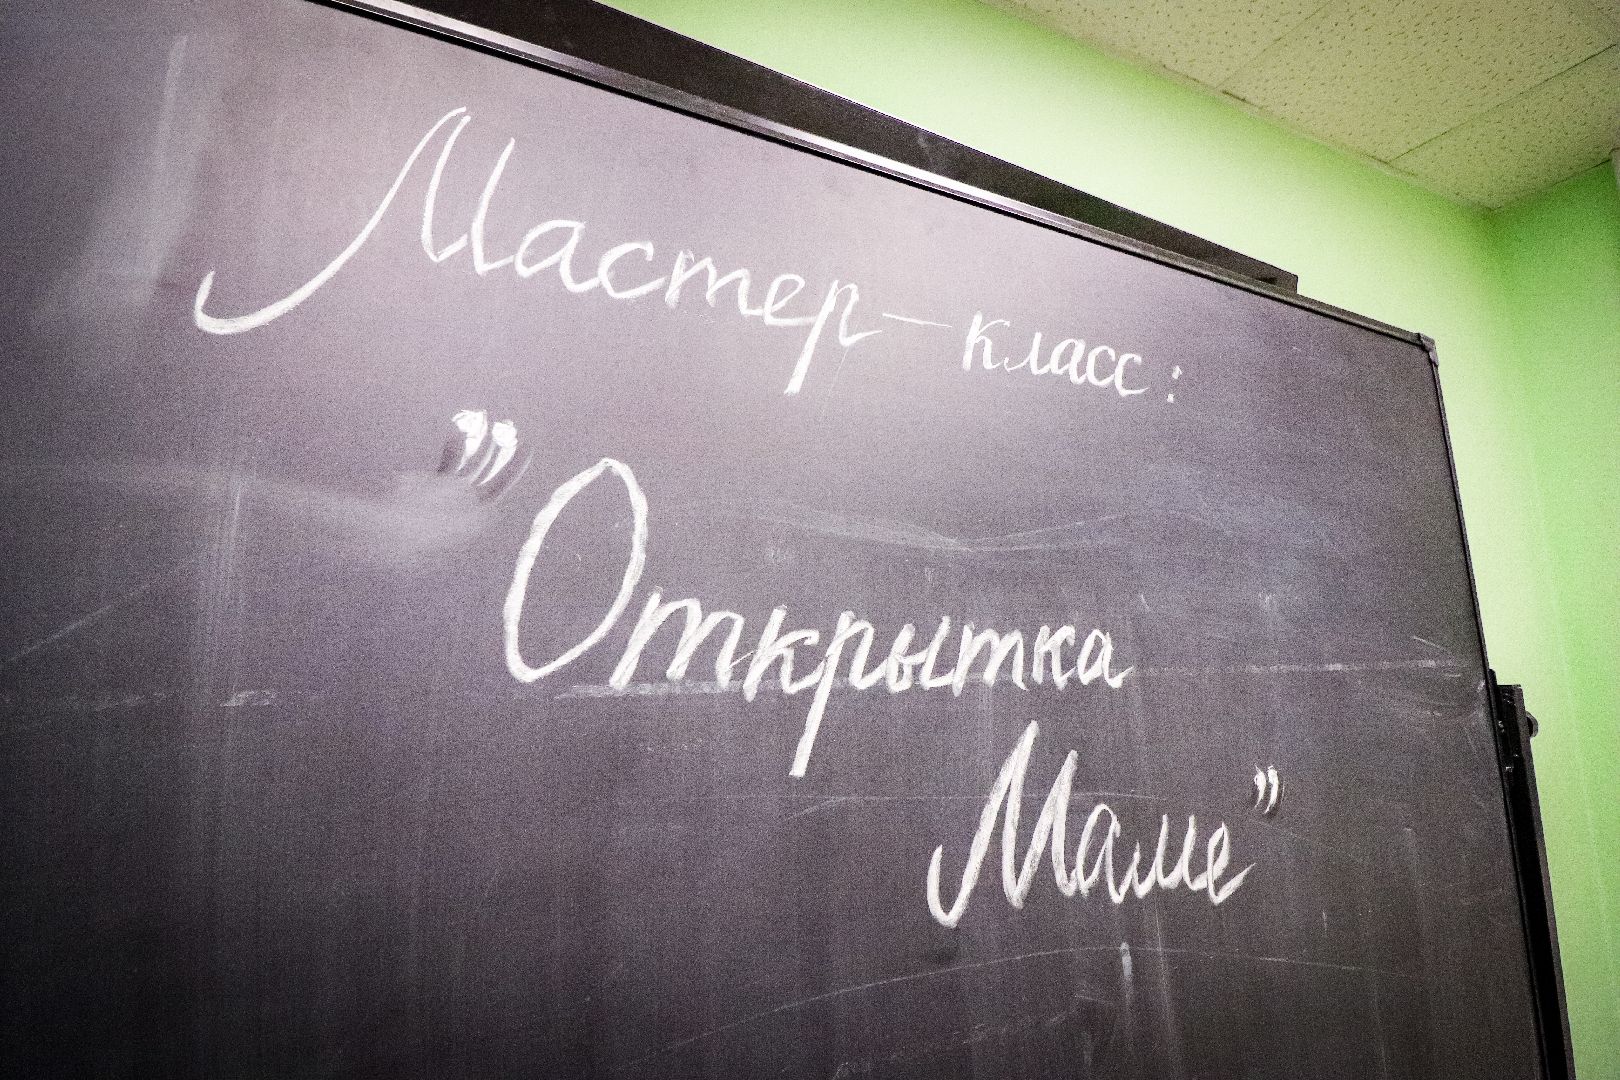 Мастер-класс:
"Открытка
Маме"